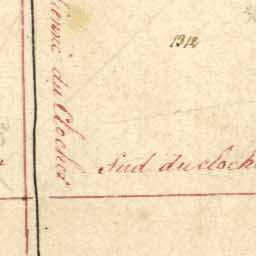 1312
du Clocher
Sud du cloch